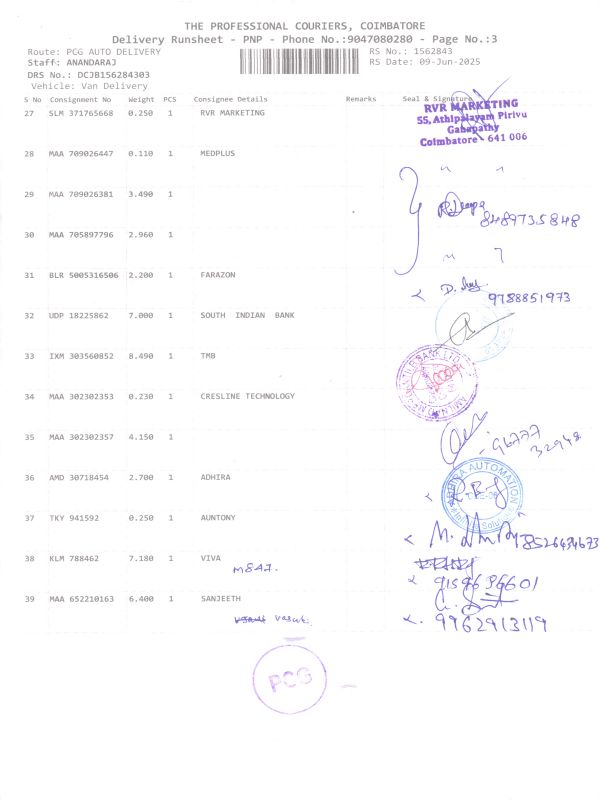 THE PROFESSIONAL COURIERS, COIMBATORE
Delivery Runsheet - PNP - Phone No.:9047080280 - Page No.:3
Route: PCG AUTO DELIVERY RS No.: 1562843
Staff: ANANDARAJ RS Date: 09-Jun-2025
DRS No.: DCJB156284303
Vehicle: Van Delivery
S No Consignment No Weight PCS Consignee Details Remarks Seal & Signature
27 SLM 371765668 0.250 1 RVR MARKETING
RVR MARKETING
55, Athipalayam Pirivu
Ganapathy
Coimbatore - 641 006
28 MAA 709026447 0.110 1 MEDPLUS
29 MAA 709026381 3.490 1
8489735848
30 MAA 705897796 2.960 1
31 BLR 5005316506 2.200 1 FARAZON
9788851973
32 UDP 18225862 7.000 1 SOUTH INDIAN BANK
33 IXM 303560852 8.490 1 TMB
34 MAA 302302353 0.230 1 CRESLINE TECHNOLOGY
35 MAA 302302357 4.150 1
96777
32948
36 AMD 30718454 2.700 1 ADHIRA
ADHIRA AUTOMATION
37 TKY 941592 0.250 1 AUNTONY
8526434673
38 KLM 788462 7.180 1 VIVA
9159636601
39 MAA 652210163 6.400 1 SANJEETH
vasuki
9962913119
PCG